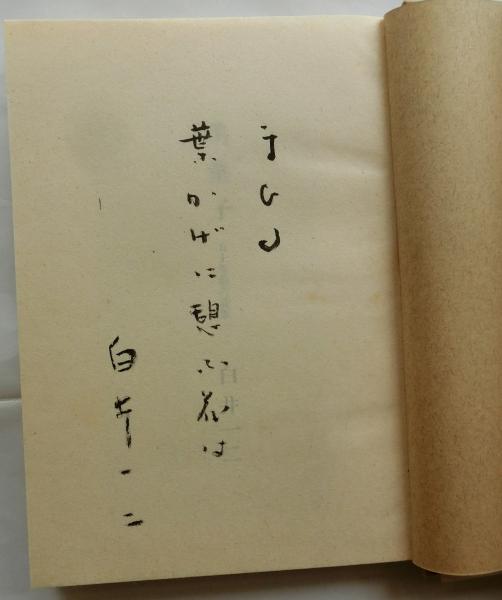 まひる
葉かげに憩ふ花は
白井一二